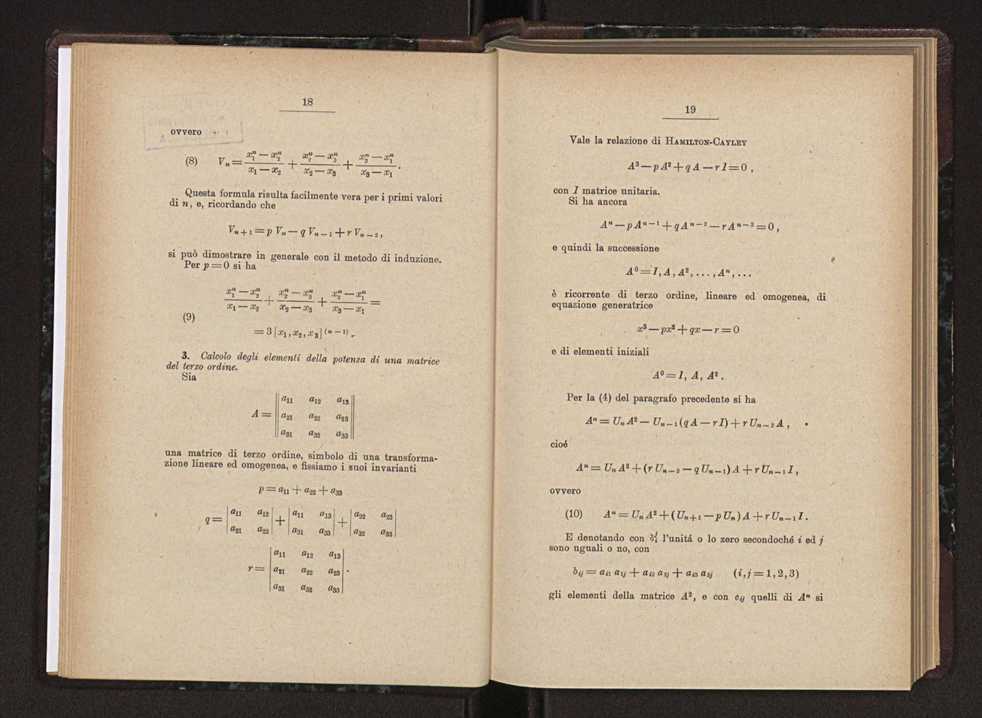 18
ovvero
(8) V_n = (x_1^n — x_2^n)/(x_1 — x_2) + (x_2^n — x_3^n)/(x_2 — x_3) + (x_3^n — x_1^n)/(x_3 — x_1).
Questa formula risulta facilmente vera per i primi valori
di n, e, ricordando che
V_{n+1} = p V_n — q V_{n-1} + r V_{n-2},
si può dimostrare in generale con il metodo di induzione.
Per p = 0 si ha
(x_1^n — x_2^n)/(x_1 — x_2) + (x_2^n — x_3^n)/(x_2 — x_3) + (x_3^n — x_1^n)/(x_3 — x_1) =
(9)
= 3 [x_1, x_2, x_3]^{(n-1)}.
3. Calcolo degli elementi della potenza di una matrice
del terzo ordine.
Sia
a_11 a_12 a_13
A = a_21 a_22 a_23
a_31 a_32 a_33
una matrice di terzo ordine, simbolo di una transforma-
zione lineare ed omogenea, e fissiamo i suoi invarianti
p = a_11 + a_22 + a_33
q = |a_11 a_12| + |a_11 a_13| + |a_22 a_23|
|a_21 a_22| |a_31 a_33| |a_32 a_33|
a_11 a_12 a_13
r = a_21 a_22 a_23 .
a_31 a_32 a_33
19
Vale la relazione di HAMILTON-CAYLEY
A³ — p A² + q A — r I = 0 ,
con I matrice unitaria.
Si ha ancora
A^n — p A^{n-1} + q A^{n-2} — r A^{n-3} = 0 ,
e quindi la successione
A⁰ = I, A, A², ..., A^n, ...
è ricorrente di terzo ordine, lineare ed omogenea, di
equazione generatrice
x³ — px² + qx — r = 0
e di elementi iniziali
A⁰ = I, A, A² .
Per la (4) del paragrafo precedente si ha
A^n = U_n A² — U_{n-1} (q A — r I) + r U_{n-2} A ,
cioé
A^n = U_n A² + (r U_{n-2} — q U_{n-1}) A + r U_{n-1} I ,
ovvero
(10) A^n = U_n A² + (U_{n+1} — p U_n) A + r U_{n-1} I .
E denotando con δ_j^i l'unitá o lo zero secondoché i ed j
sono uguali o no, con
b_ij = a_i1 a_1j + a_i2 a_2j + a_i3 a_3j (i, j = 1, 2, 3)
gli elementi della matrice A², e con c_ij quelli di A^n si